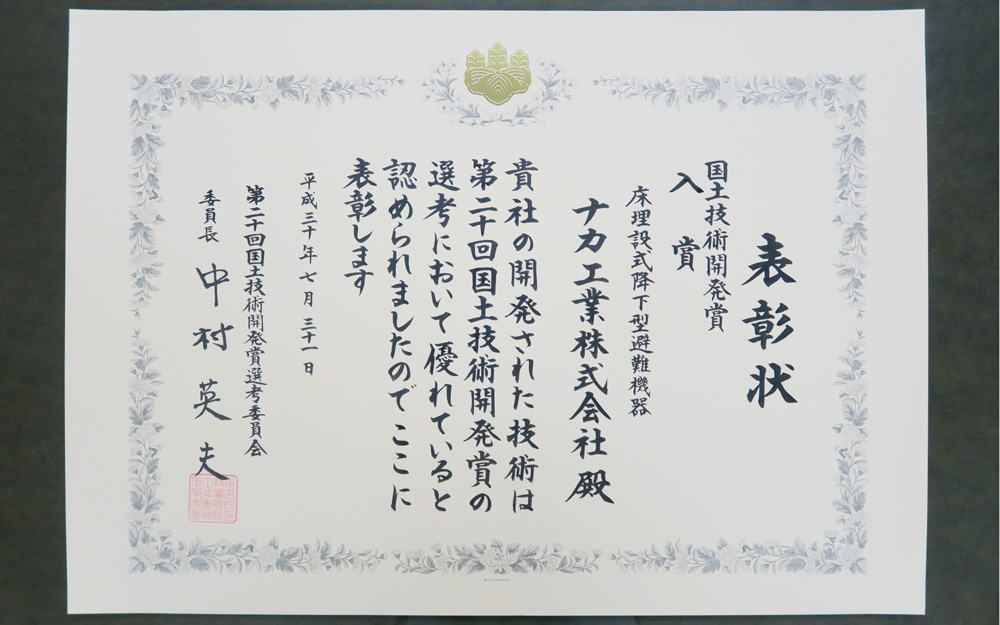 表彰状
国土技術開発賞
入賞
床埋設式降下型避難機器
ナカ工業株式会社殿
貴社の開発された技術は
第二十回国土技術開発賞の
選考において優れていると
認められましたのでここに
表彰します
平成三十年七月三十一日
第二十回国土技術開発賞選考委員会
委員長 中村英夫